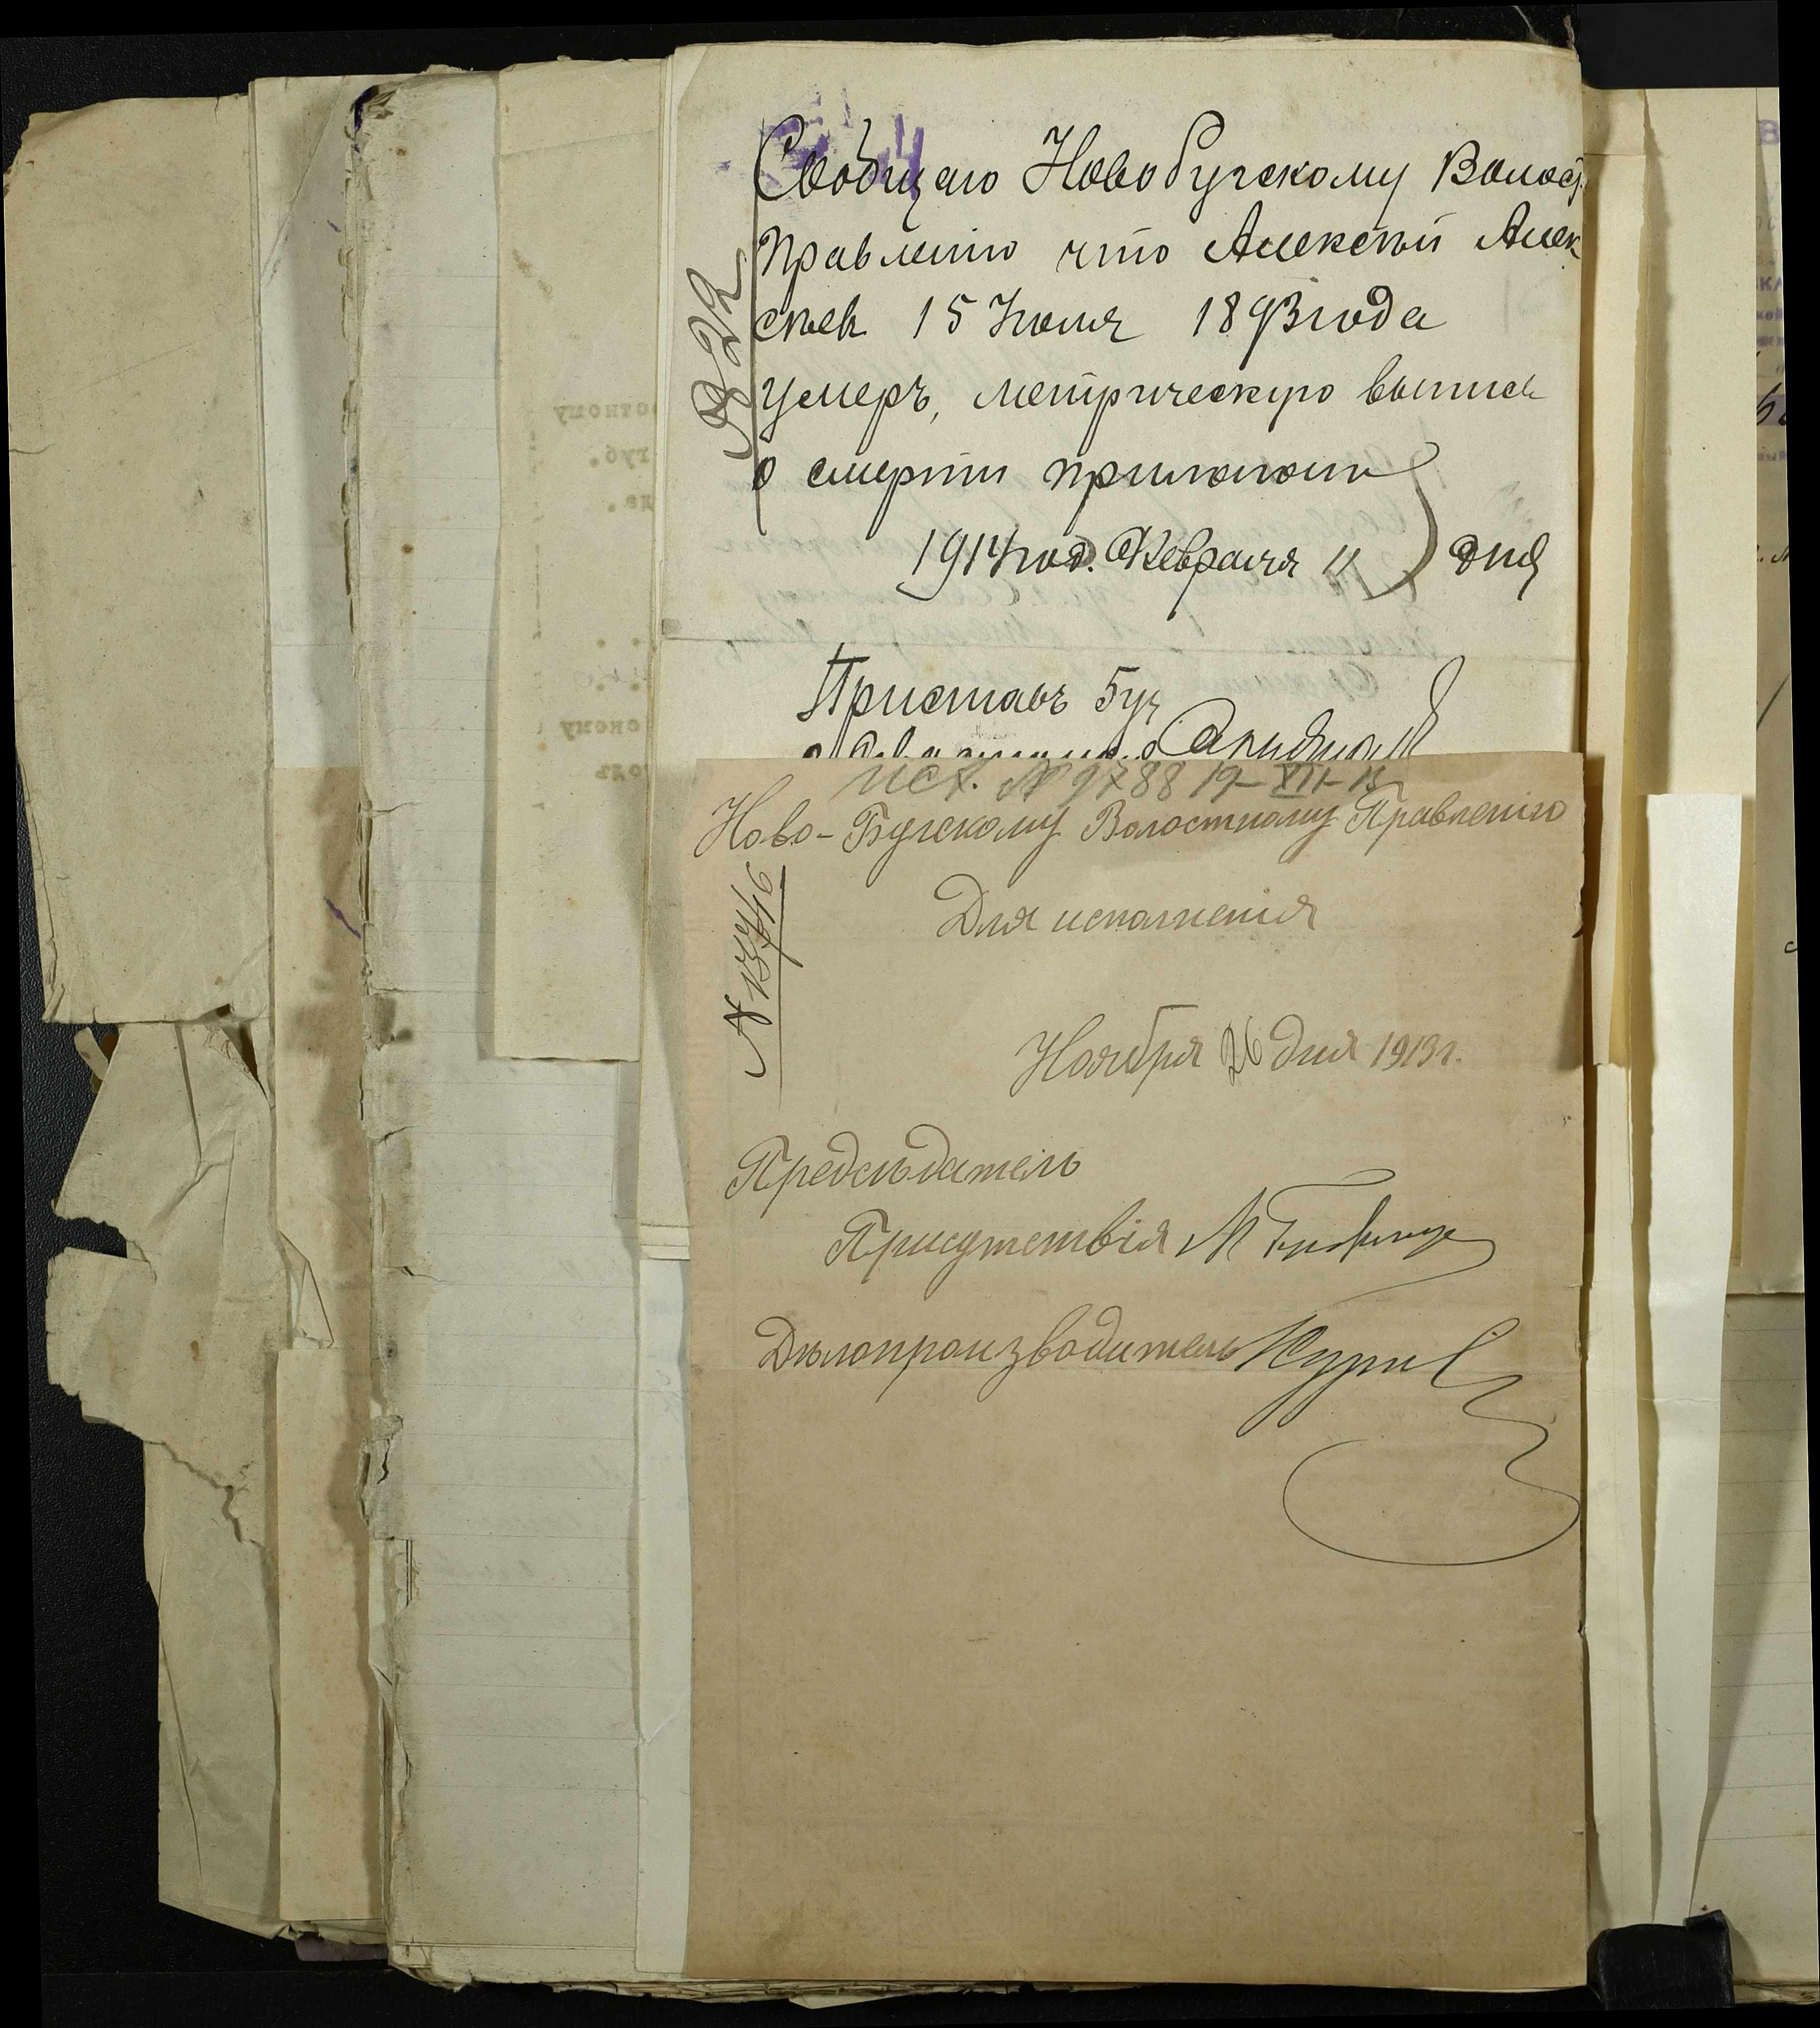 Сообщаю Новобугскому Волост.
Правленiю что Алексѣй Алек
сѣев 15 Июля 1893 года
умеръ, метрическую выпись
о смерти прилагаю
1914 год. Февраля 11 дня
922
Приставъ Буг
исх. № 9788 19-XII-13
Ново-Бугскому Волостному Правленiю
№ 13746
Для исполненiя
Ноября 26 дня 1913 г.
Предсѣдатель
Присутствiя М
Дѣлопроизводитель